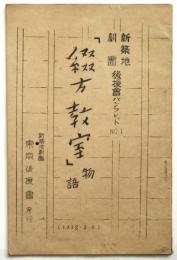 新築地
劇團
後援會パンフレット
NO.1
「綴方教室」物語
新築地劇團
東京後援會発行